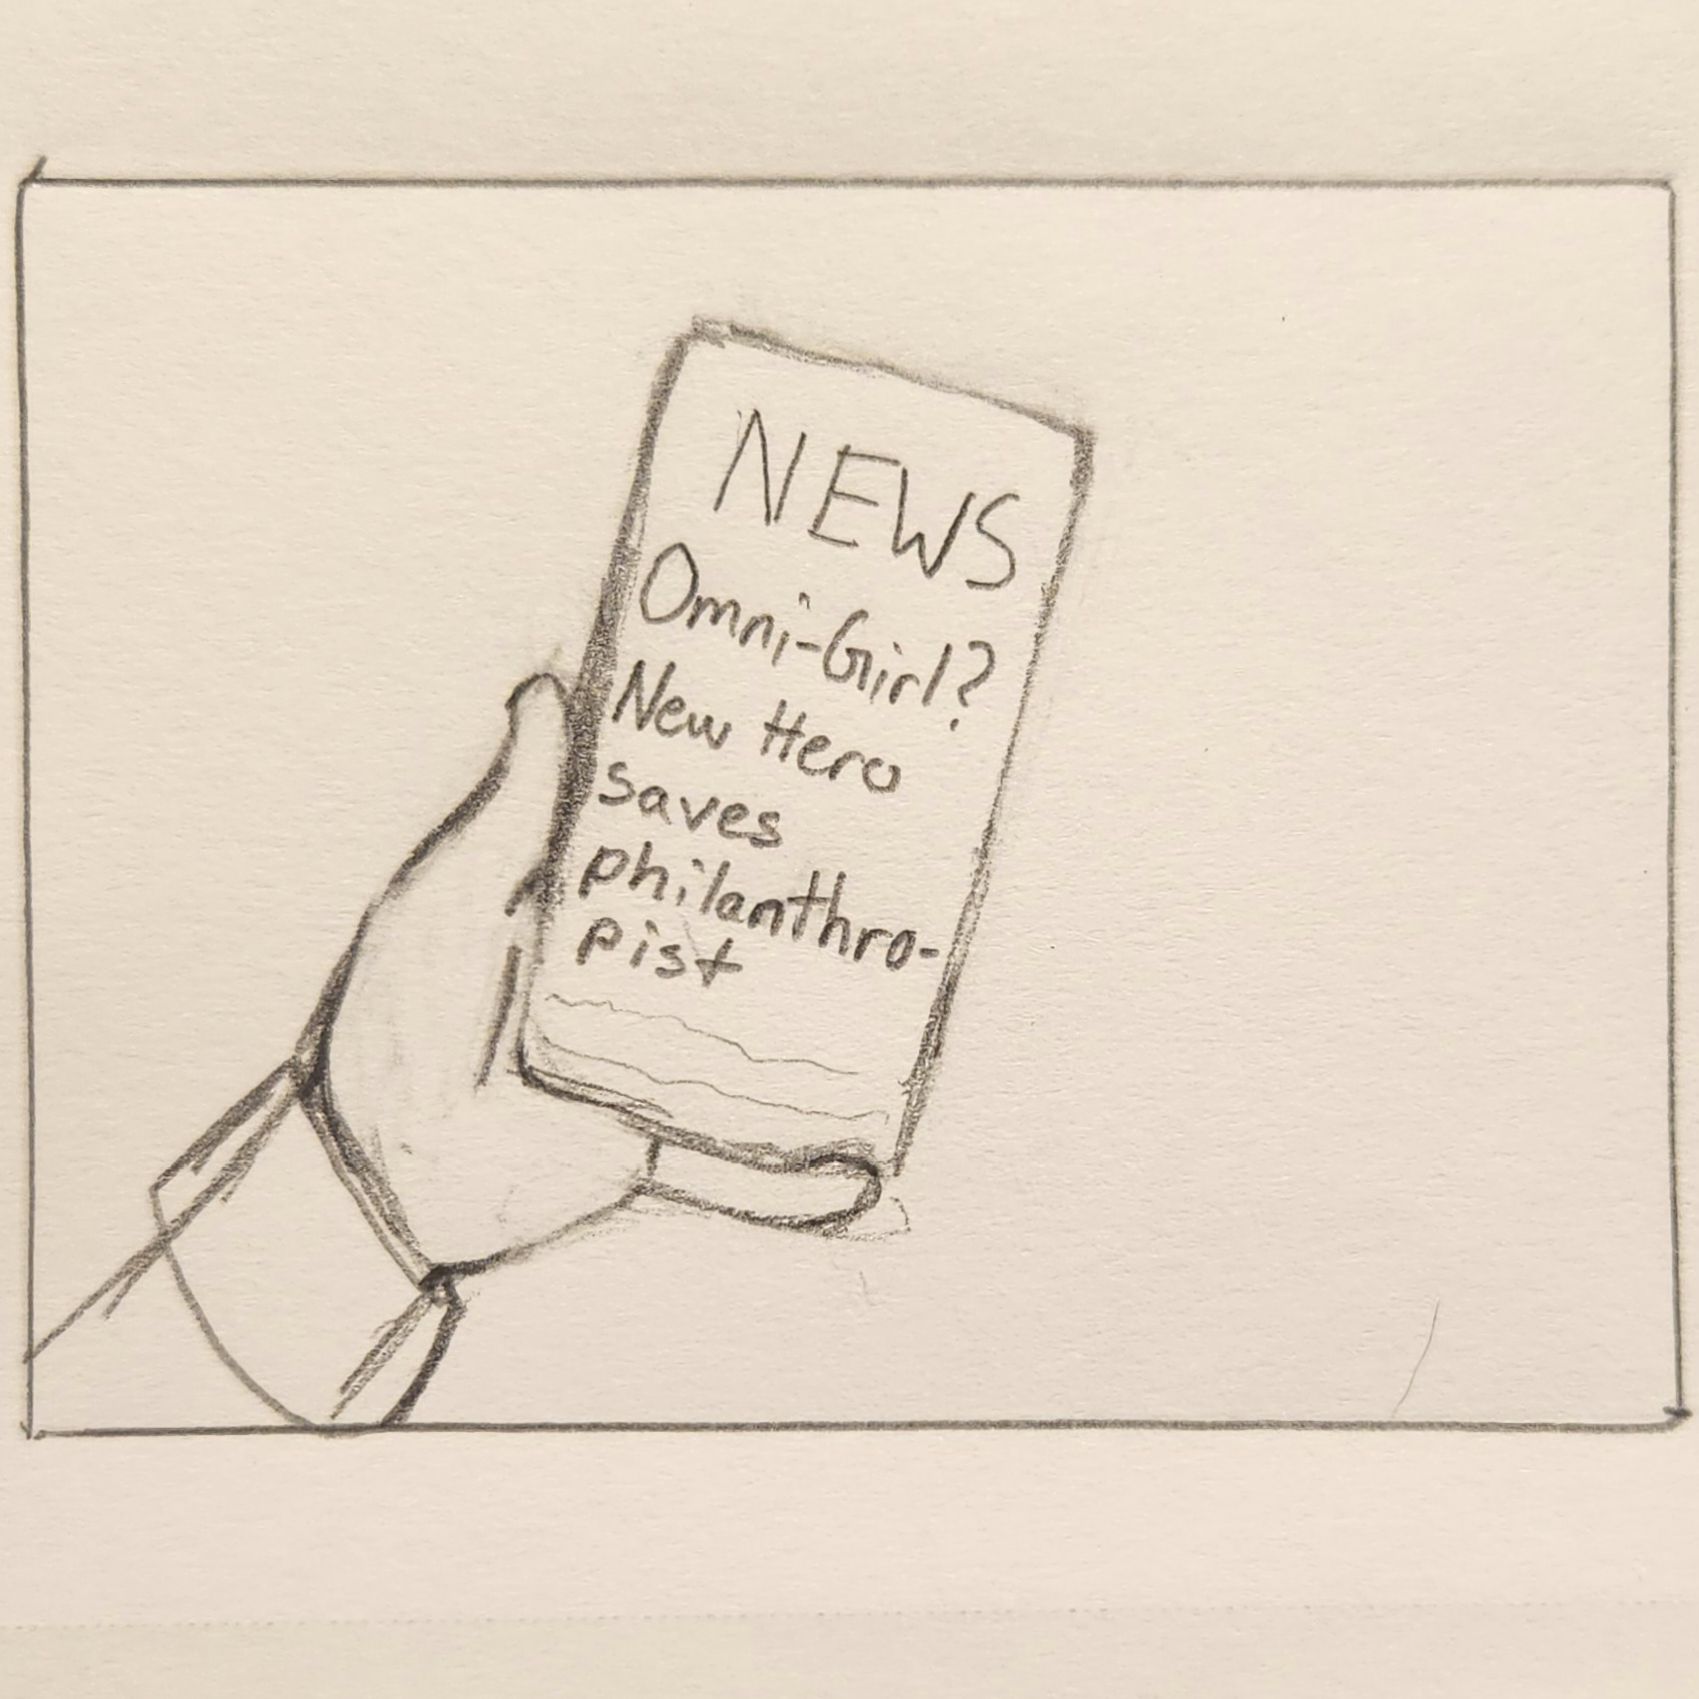 NEWS
Omni-Girl?
New Hero
saves
philanthro-
pist